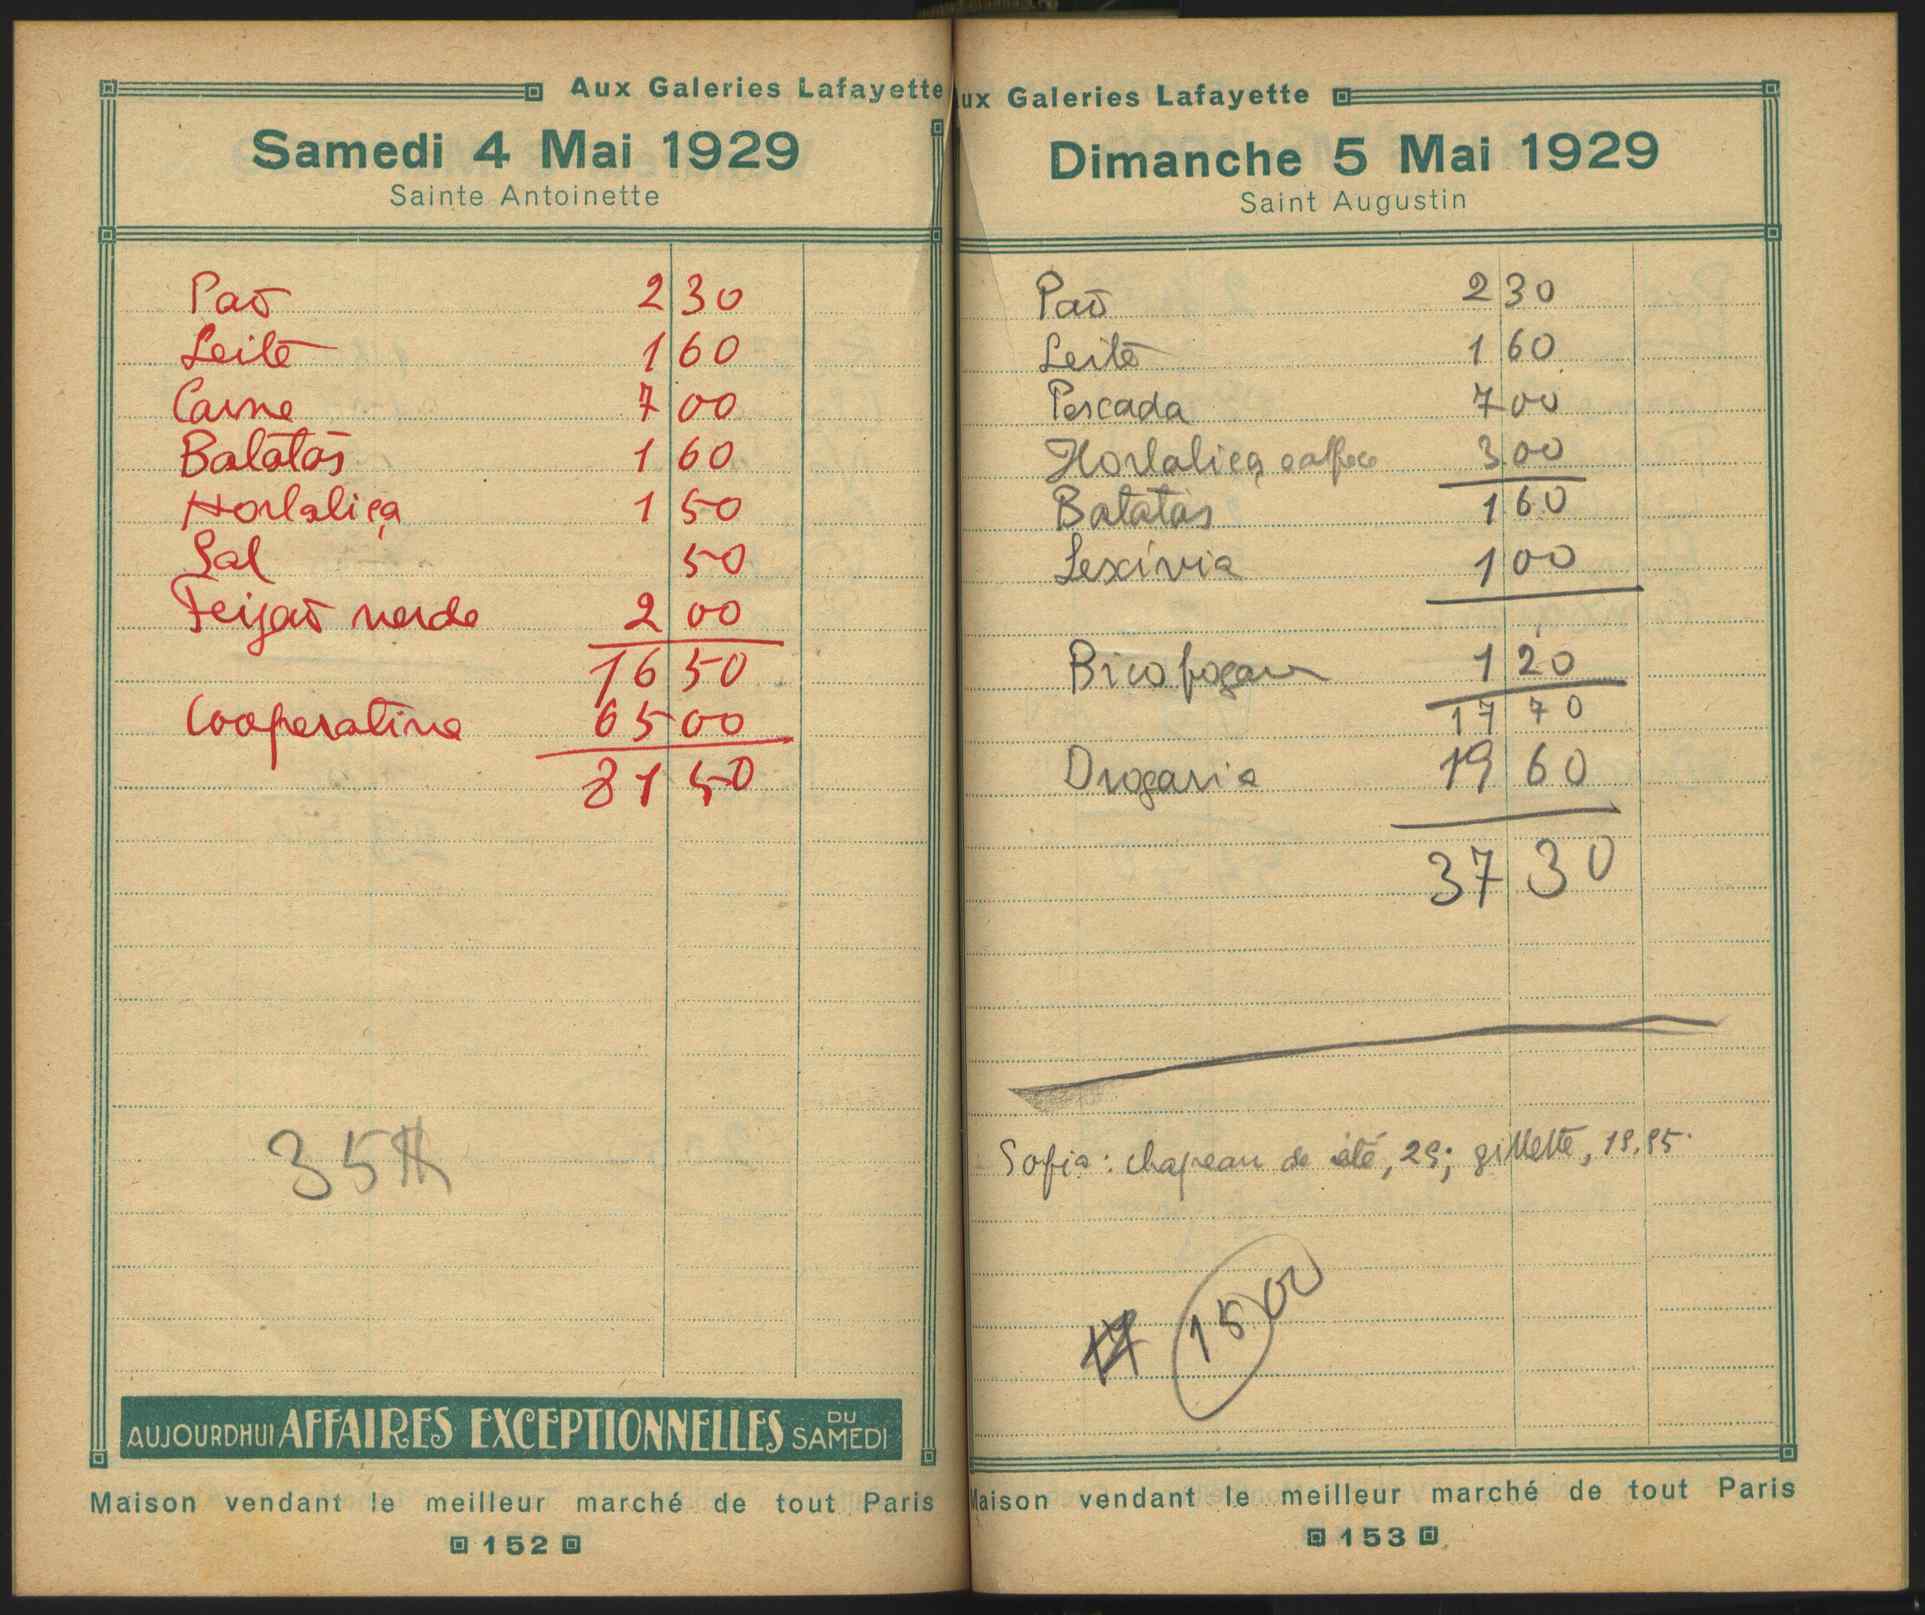 Aux Galeries Lafayette
Samedi 4 Mai 1929
Sainte Antoinette
Pão 2 30
Leite 1 60
Carne 7 00
Batatas 1 60
Hortaliça 1 50
Sal 50
Feijão verde 2 00
16 50
Cooperativa 65 00
81 50
35
AUJOURDHUI AFFAIRES EXCEPTIONNELLES DU SAMEDI
Maison vendant le meilleur marché de tout Paris
152
ux Galeries Lafayette
Dimanche 5 Mai 1929
Saint Augustin
Pão 2 30
Leite 1 60
Pescada 7 00
Hortaliça 3 00
Batatas 1 60
Lexívia 1 00
Bico 1 20
17 70
Drogaria 19 60
37 30
Sofia: chapeau de été, 29; gillette, 19.95
15 00
Maison vendant le meilleur marché de tout Paris
153